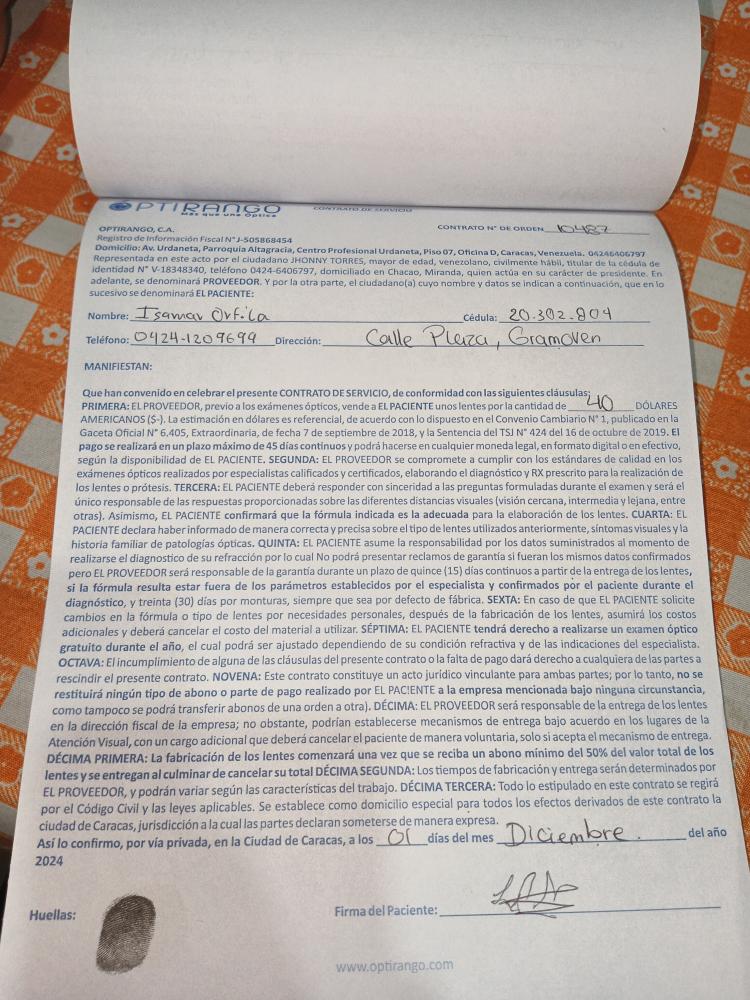 OPTIRANGO
Más que una Óptica
CONTRATO DE SERVICIO
OPTIRANGO, C.A.
CONTRATO N° DE ORDEN 10487
Registro de Información Fiscal N° J-505868454
Domicilio: Av. Urdaneta, Parroquia Altagracia, Centro Profesional Urdaneta, Piso 07, Oficina D, Caracas, Venezuela. 04246406797
Representada en este acto por el ciudadano JHONNY TORRES, mayor de edad, venezolano, civilmente hábil, titular de la cédula de
identidad N° V-18348340, teléfono 0424-6406797, domiciliado en Chacao, Miranda, quien actúa en su carácter de presidente. En
adelante, se denominará PROVEEDOR. Y por la otra parte, el ciudadano(a) cuyo nombre y datos se indican a continuación, que en lo
sucesivo se denominará EL PACIENTE:
Nombre: Isamar Orfila Cédula: 20.302.804
Teléfono: 0424-1209699 Dirección: Calle Plaza, Gramoven
MANIFIESTAN:
Que han convenido en celebrar el presente CONTRATO DE SERVICIO, de conformidad con las siguientes cláusulas:
PRIMERA: EL PROVEEDOR, previo a los exámenes ópticos, vende a EL PACIENTE unos lentes por la cantidad de 40 DÓLARES
AMERICANOS ($-). La estimación en dólares es referencial, de acuerdo con lo dispuesto en el Convenio Cambiario N° 1, publicado en la
Gaceta Oficial N° 6.405, Extraordinaria, de fecha 7 de septiembre de 2018, y la Sentencia del TSJ N° 424 del 16 de octubre de 2019. El
pago se realizará en un plazo máximo de 45 días continuos y podrá hacerse en cualquier moneda legal, en formato digital o en efectivo,
según la disponibilidad de EL PACIENTE. SEGUNDA: EL PROVEEDOR se compromete a cumplir con los estándares de calidad en los
exámenes ópticos realizados por especialistas calificados y certificados, elaborando el diagnóstico y RX prescrito para la realización de
los lentes o prótesis. TERCERA: EL PACIENTE deberá responder con sinceridad a las preguntas formuladas durante el examen y será el
único responsable de las respuestas proporcionadas sobre las diferentes distancias visuales (visión cercana, intermedia y lejana, entre
otras). Asimismo, EL PACIENTE confirmará que la fórmula indicada es la adecuada para la elaboración de los lentes. CUARTA: EL
PACIENTE declara haber informado de manera correcta y precisa sobre el tipo de lentes utilizados anteriormente, síntomas visuales y la
historia familiar de patologías ópticas. QUINTA: EL PACIENTE asume la responsabilidad por los datos suministrados al momento de
realizarse el diagnostico de su refracción por lo cual No podrá presentar reclamos de garantía si fueran los mismos datos confirmados
pero EL PROVEEDOR será responsable de la garantía durante un plazo de quince (15) días continuos a partir de la entrega de los lentes,
si la fórmula resulta estar fuera de los parámetros establecidos por el especialista y confirmados por el paciente durante el
diagnóstico, y treinta (30) días por monturas, siempre que sea por defecto de fábrica. SEXTA: En caso de que EL PACIENTE solicite
cambios en la fórmula o tipo de lentes por necesidades personales, después de la fabricación de los lentes, asumirá los costos
adicionales y deberá cancelar el costo del material a utilizar. SÉPTIMA: EL PACIENTE tendrá derecho a realizarse un examen óptico
gratuito durante el año, el cual podrá ser ajustado dependiendo de su condición refractiva y de las indicaciones del especialista.
OCTAVA: El incumplimiento de alguna de las cláusulas del presente contrato o la falta de pago dará derecho a cualquiera de las partes a
rescindir el presente contrato. NOVENA: Este contrato constituye un acto jurídico vinculante para ambas partes; por lo tanto, no se
restituirá ningún tipo de abono o parte de pago realizado por EL PACIENTE a la empresa mencionada bajo ninguna circunstancia,
como tampoco se podrá transferir abonos de una orden a otra). DÉCIMA: EL PROVEEDOR será responsable de la entrega de los lentes
en la dirección fiscal de la empresa; no obstante, podrían establecerse mecanismos de entrega bajo acuerdo en los lugares de la
Atención Visual, con un cargo adicional que deberá cancelar el paciente de manera voluntaria, solo si acepta el mecanismo de entrega.
DÉCIMA PRIMERA: La fabricación de los lentes comenzará una vez que se reciba un abono mínimo del 50% del valor total de los
lentes y se entregan al culminar de cancelar su total DÉCIMA SEGUNDA: Los tiempos de fabricación y entrega serán determinados por
EL PROVEEDOR, y podrán variar según las características del trabajo. DÉCIMA TERCERA: Todo lo estipulado en este contrato se regirá
por el Código Civil y las leyes aplicables. Se establece como domicilio especial para todos los efectos derivados de este contrato la
ciudad de Caracas, jurisdicción a la cual las partes declaran someterse de manera expresa.
Así lo confirmo, por vía privada, en la Ciudad de Caracas, a los 01 días del mes Diciembre. del año
2024
Huellas:
Firma del Paciente:
www.optirango.com